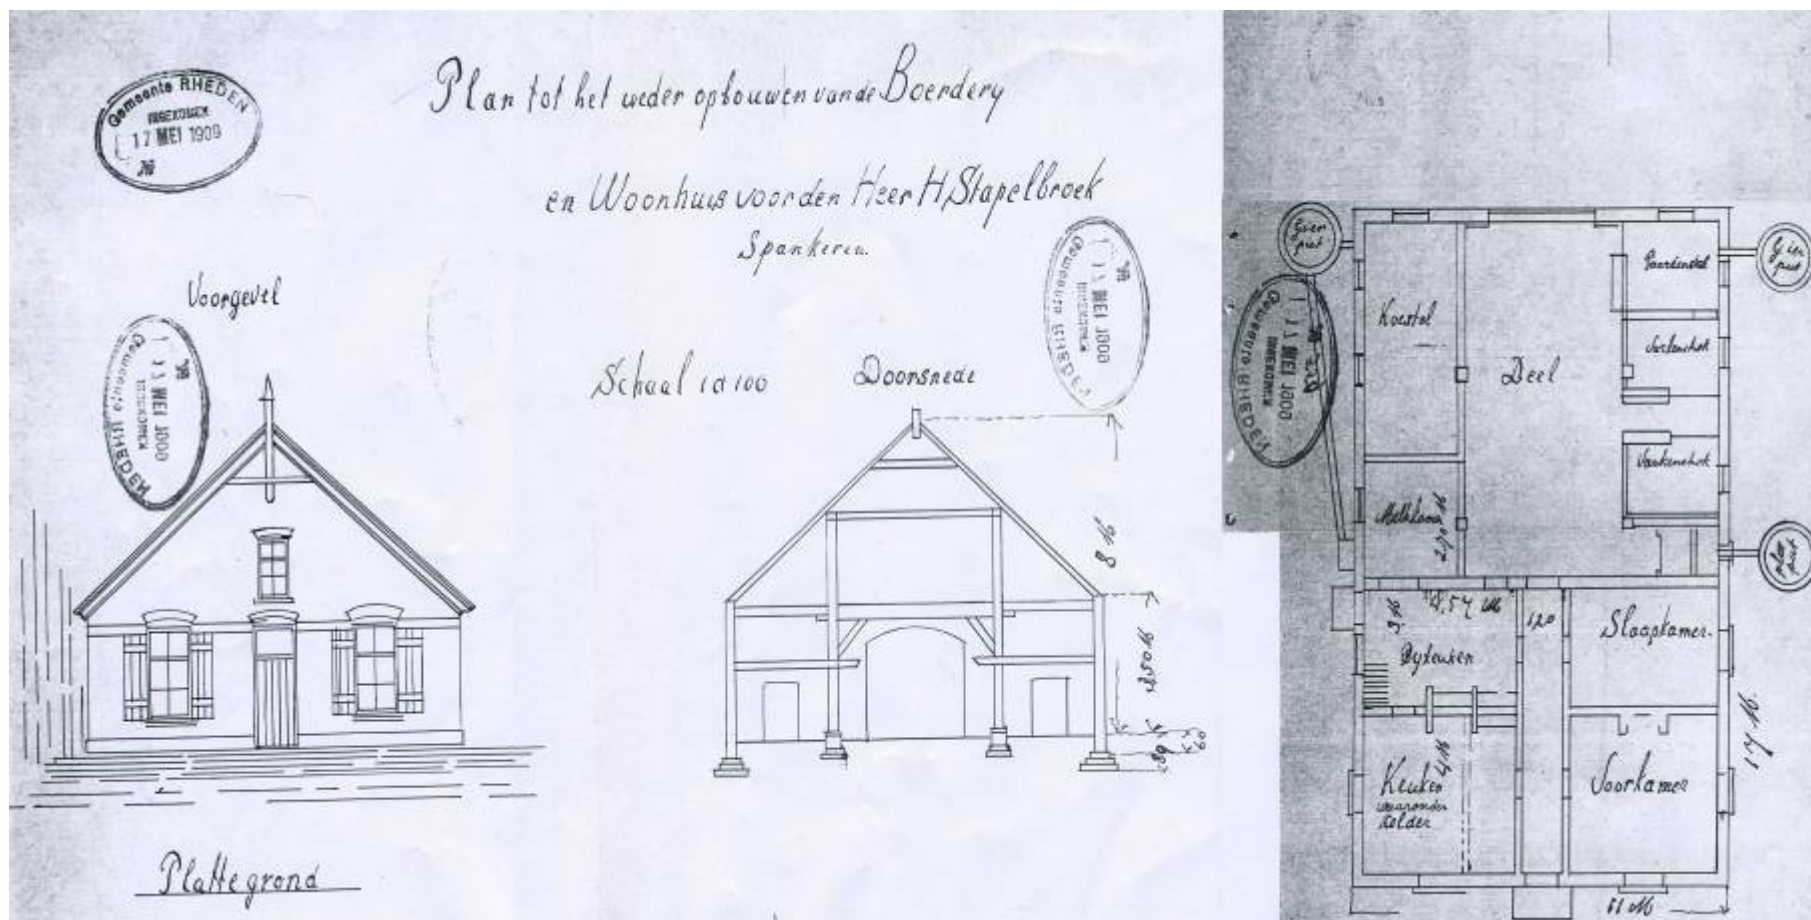 Gemeente RHEDEN
INGEKOMEN
17 MEI 1909
No
Plan tot het weder opbouwen van de Boerdery
en Woonhuis voor den Heer H Stapelbroek
Spankeren.
Voorgevel
Gemeente RHEDEN
INGEKOMEN
17 MEI
No
Schaal 1 à 100
Doorsnede
Gemeente RHEDEN
INGEKOMEN
17 MEI
No
8 M
60
Plattegrond
Gemeente RHEDEN
INGEKOMEN
17 MEI
Gier
put
Gier
put
Koestal
Deel
Paardenstal
Varkenshok
Varkenshok
Melkkamer
2,70 M
put
3 M
1,20
Slaapkamer.
Bykeuken
17 M.
Keuken
4 M
waaronder
Kelder
Voorkamer
11 M